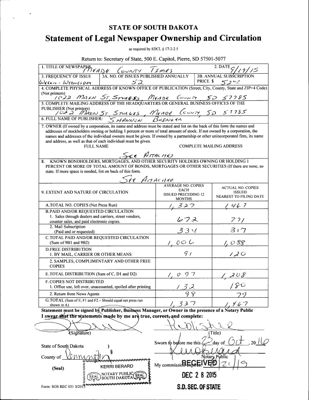 STATE OF SOUTH DAKOTA
Statement of Legal Newspaper Ownership and Circulation
as required by SDCL 17-2-2.5
Return to: Secretary of State, 500 E. Capitol, Pierre, SD 57501-5077
1. TITLE OF NEWSPAPER MEADE COUNTY TIMES
3. FREQUENCY OF ISSUE
3A. NO. OF ISSUES PUBLISHED ANNUALLY 52
3B. ANNUAL SUBSCRIPTION PRICE $
4. COMPLETE PHYSICAL ADDRESS OF KNOWN OFFICE OF PUBLICATION (Street, City, County, State and ZIP+4 Code) (Not printers)
1022 MAIN ST STURGIS MEADE COUNTY SD 57785
5. COMPLETE MAILING ADDRESS OF THE HEADQUARTERS OR GENERAL BUSINESS OFFICES OF THE PUBLISHER (Not printers)
1022 MAIN ST STURGIS, MEADE COUNTY SD 57785
6. FULL NAME OF PUBLISHER: SHANNON
7. OWNER (If owned by a corporation, its name and address must be stated and also listed on the back of this form the names and addresses of stockholders owning or holding 1 percent or more of total amount of stock. If not owned by a corporation, the names and addresses of the individual owners must be given. If owned by a partnership or other unincorporated firm, its name and address, as well as that of each individual must be given.
FULL NAME COMPLETE MAILING ADDRESS
SEE ATTACHED
8. KNOWN BONDHOLDERS, MORTGAGES, AND OTHER SECURITY HOLDERS OWNING OR HOLDING 1 PERCENT OR MORE OF TOTAL AMOUNT OF BONDS, MORTGAGES OR OTHER SECURITIES (If there are none, so state. If more space is needed, list on back of this form).
SEE ATTACHED
9. EXTENT AND NATURE OF CIRCULATION
AVERAGE NO. COPIES EACH ISSUE PRECEDING 12 MONTHS
ACTUAL NO. COPIES ISSUED NEAREST TO FILING DATE
A. TOTAL NO. COPIES (Net Press Run) 1,327 1,467
B. PAID AND/OR REQUESTED CIRCULATION
1. Sales through dealers and carriers, street vendors, counter sales, and paid electronic copies 672 771
2. Mail Subscription (Paid and or requested) 334 317
C. TOTAL PAID AND/OR REQUESTED CIRCULATION (Sum of 9B1 and 9B2) 1,006 1,088
D. FREE DISTRIBUTION
1. BY MAIL, CARRIER OR OTHER MEANS 91 120
2. SAMPLES, COMPLIMENTARY AND OTHER FREE COPIES
E. TOTAL DISTRIBUTION (Sum of C, D1 and D2) 1,097 1,208
F. COPIES NOT DISTRIBUTED
1. Office use, left over, unaccounted, spoiled after printing 132 180
2. Return from News Agents 98 79
G. TOTAL (Sum of E, F1 and F2 - Should equal net press run shown in A) 1,327 1,467
Statement must be signed by Publisher, Business Manager, or Owner in the presence of a Notary Public
I swear that the statements made by me are true, correct, and complete:
(Signature) Publisher (Title)
State of South Dakota
County of Pennington
Sworn to before me this day of Oct
(Seal)
KERRI BERARD
NOTARY PUBLIC
SOUTH DAKOTA
Notary Public
My commission
RECEIVED
DEC 28 2015
S.D. SEC. OF STATE